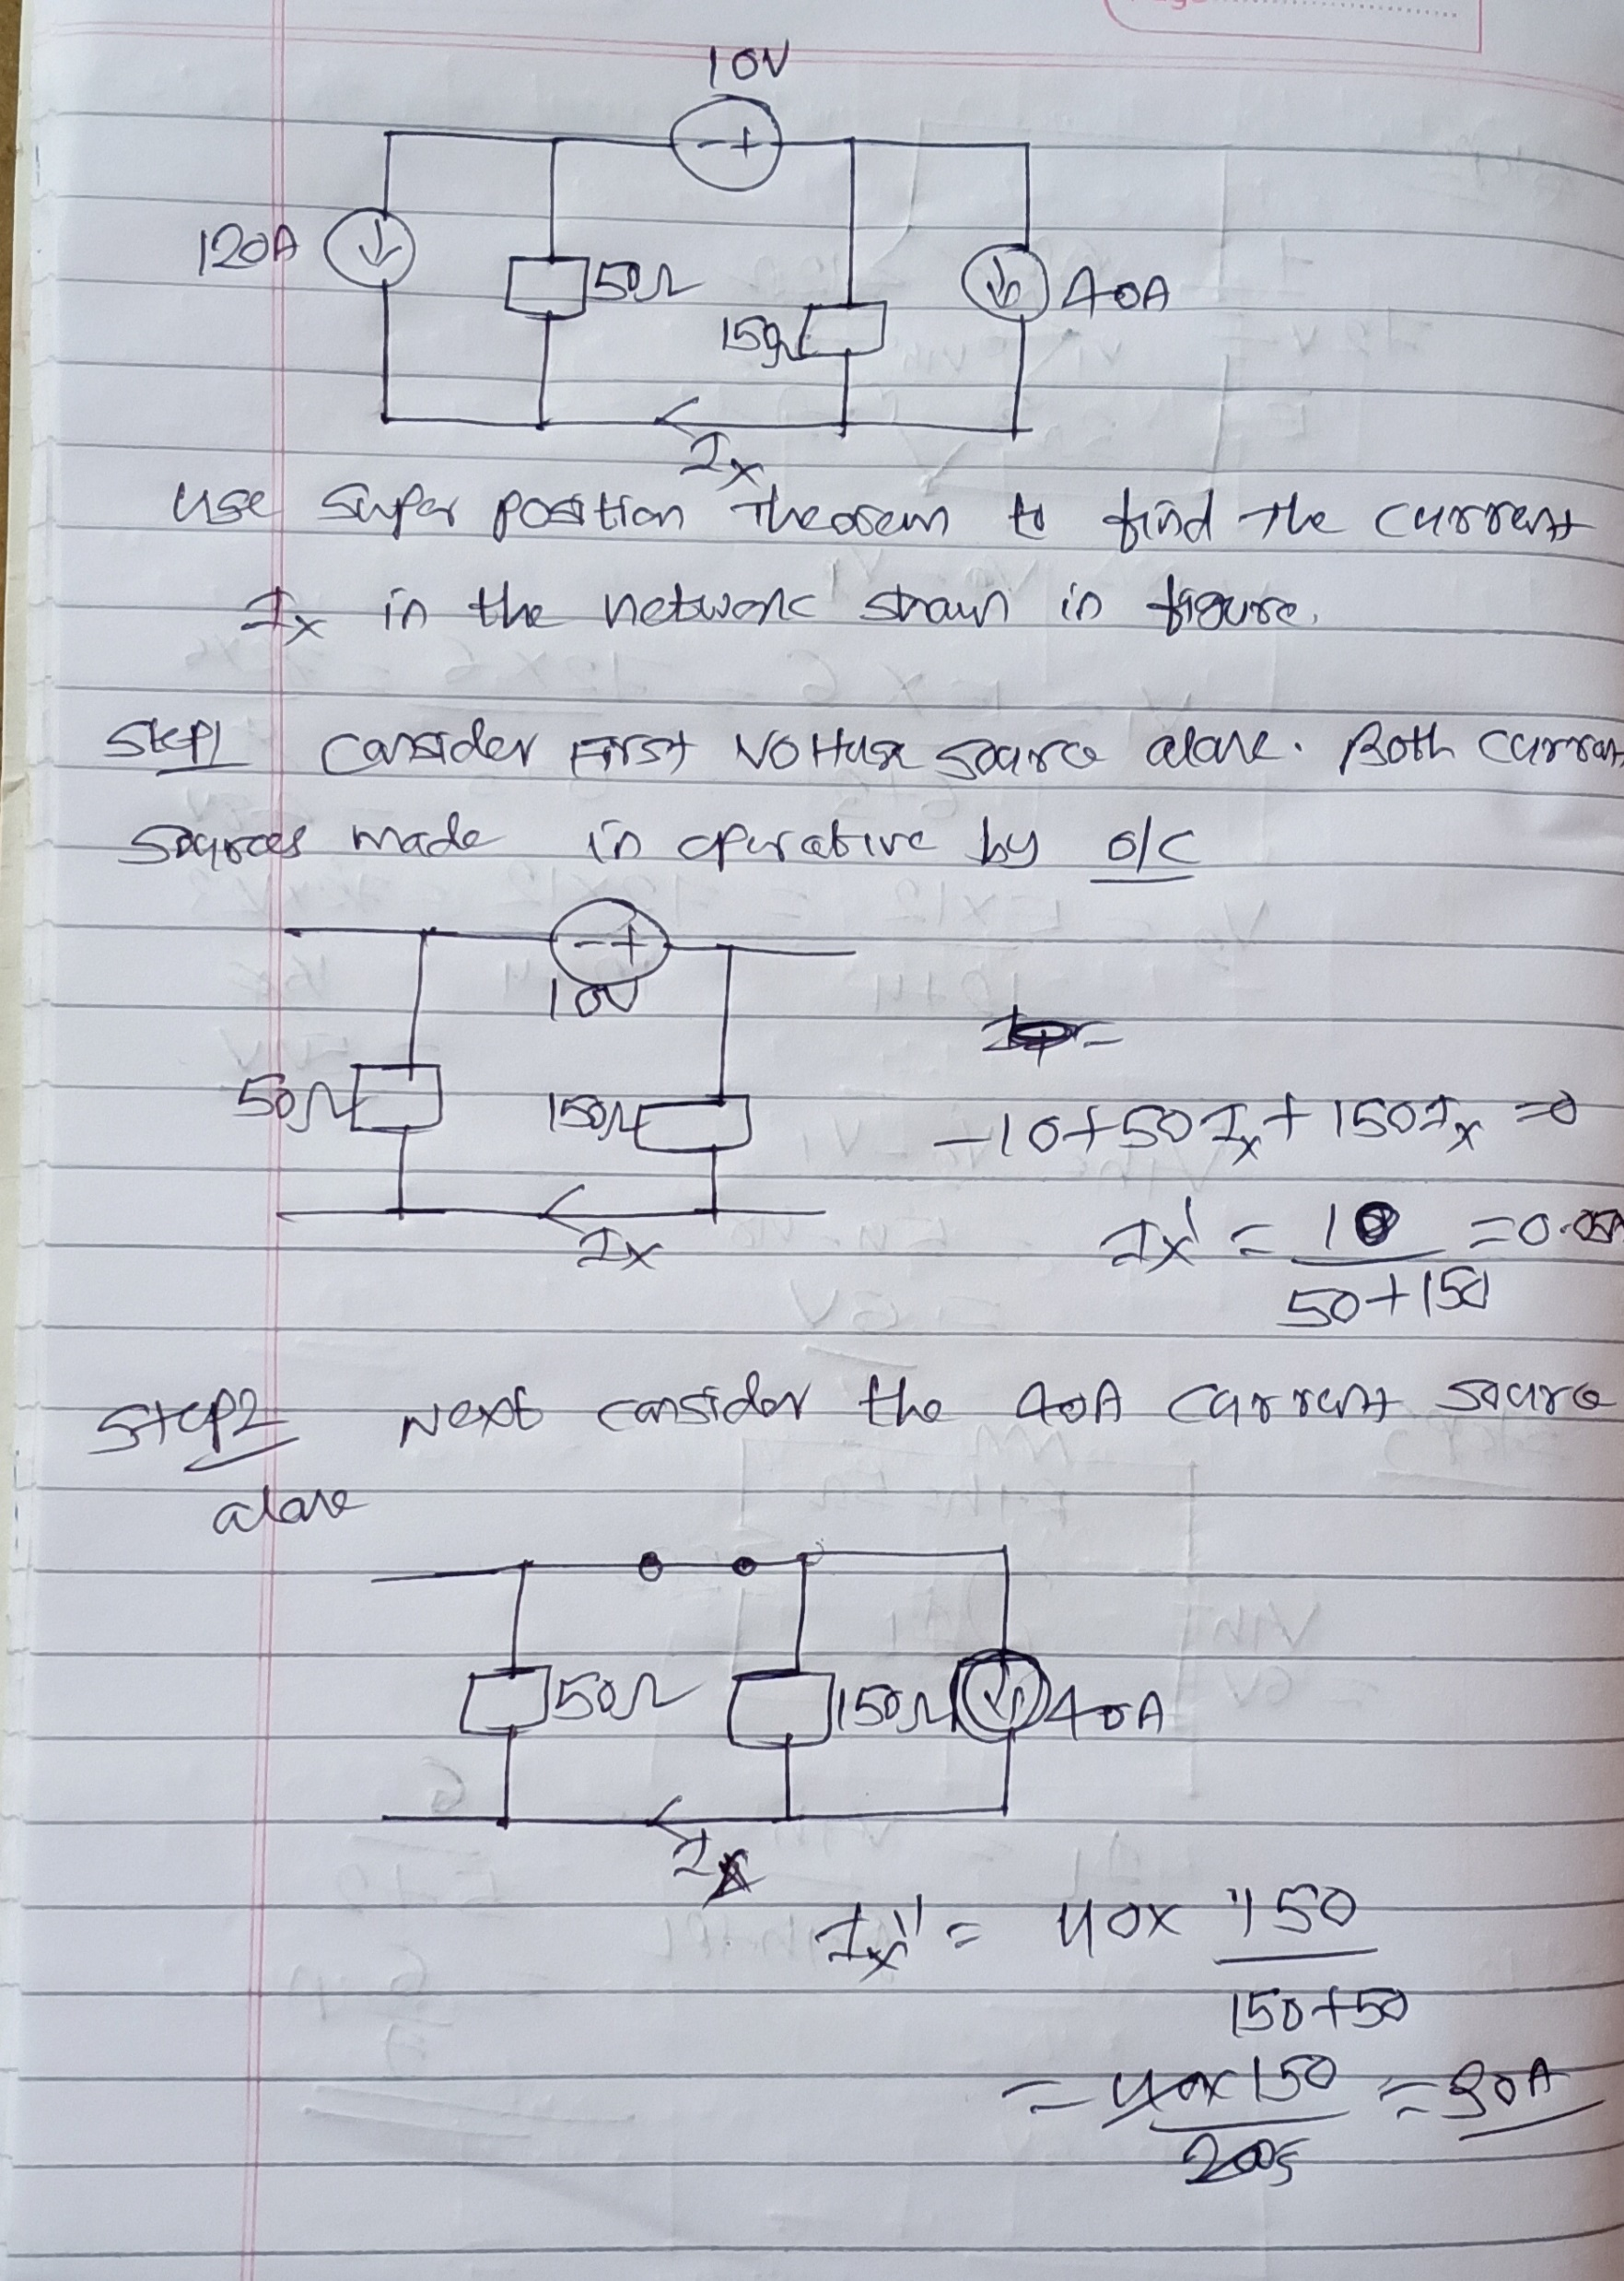 10V
120A
50Ω
15Ω
40A
Ix
Use Super position Theorem to find the current
Ix in the network shown in figure.
Step1 Consider First Voltage source alone. Both current
sources made in operative by o/c
10V
50Ω
150Ω
-10+50Ix+150Ix=0
Ix
Ix' = 10 =0.05A
50+150
Step2 Next consider the 40A current source
alone
50Ω
150Ω
40A
Ix
Ix'' = 40x 150
150+50
= 40x150 = 30A
200